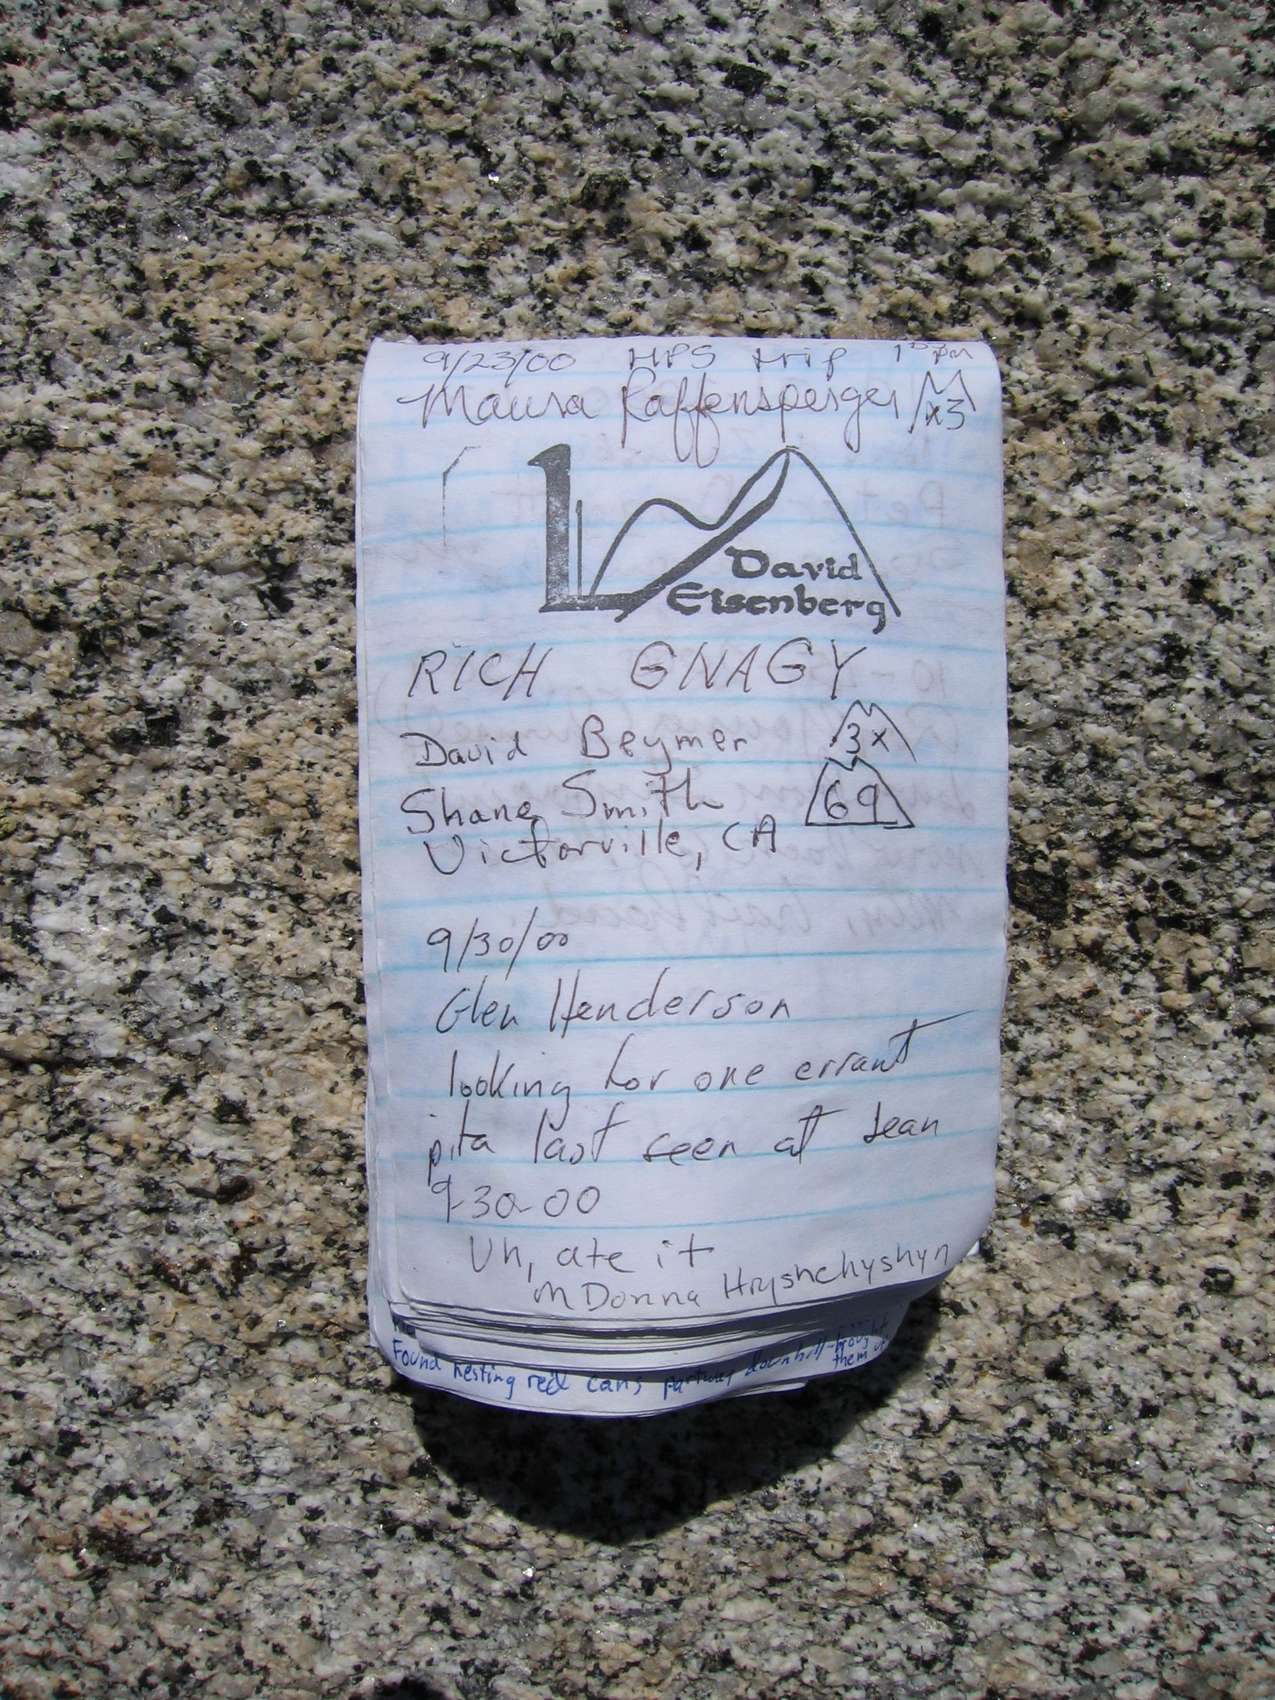 9/23/00 HPS trip 1 53 pm
Maura Raffensperger x3
David
Eisenberg
RICH GNAGY
David Beymer 3x
Shane Smith 69
Victorville, CA
9/30/00
Glen Henderson
looking for one errant
pita last seen at Sean
9-30-00
Uh, ate it
M Donna Hryshchyshyn
Found nesting red cans partway downhill-brought
them up